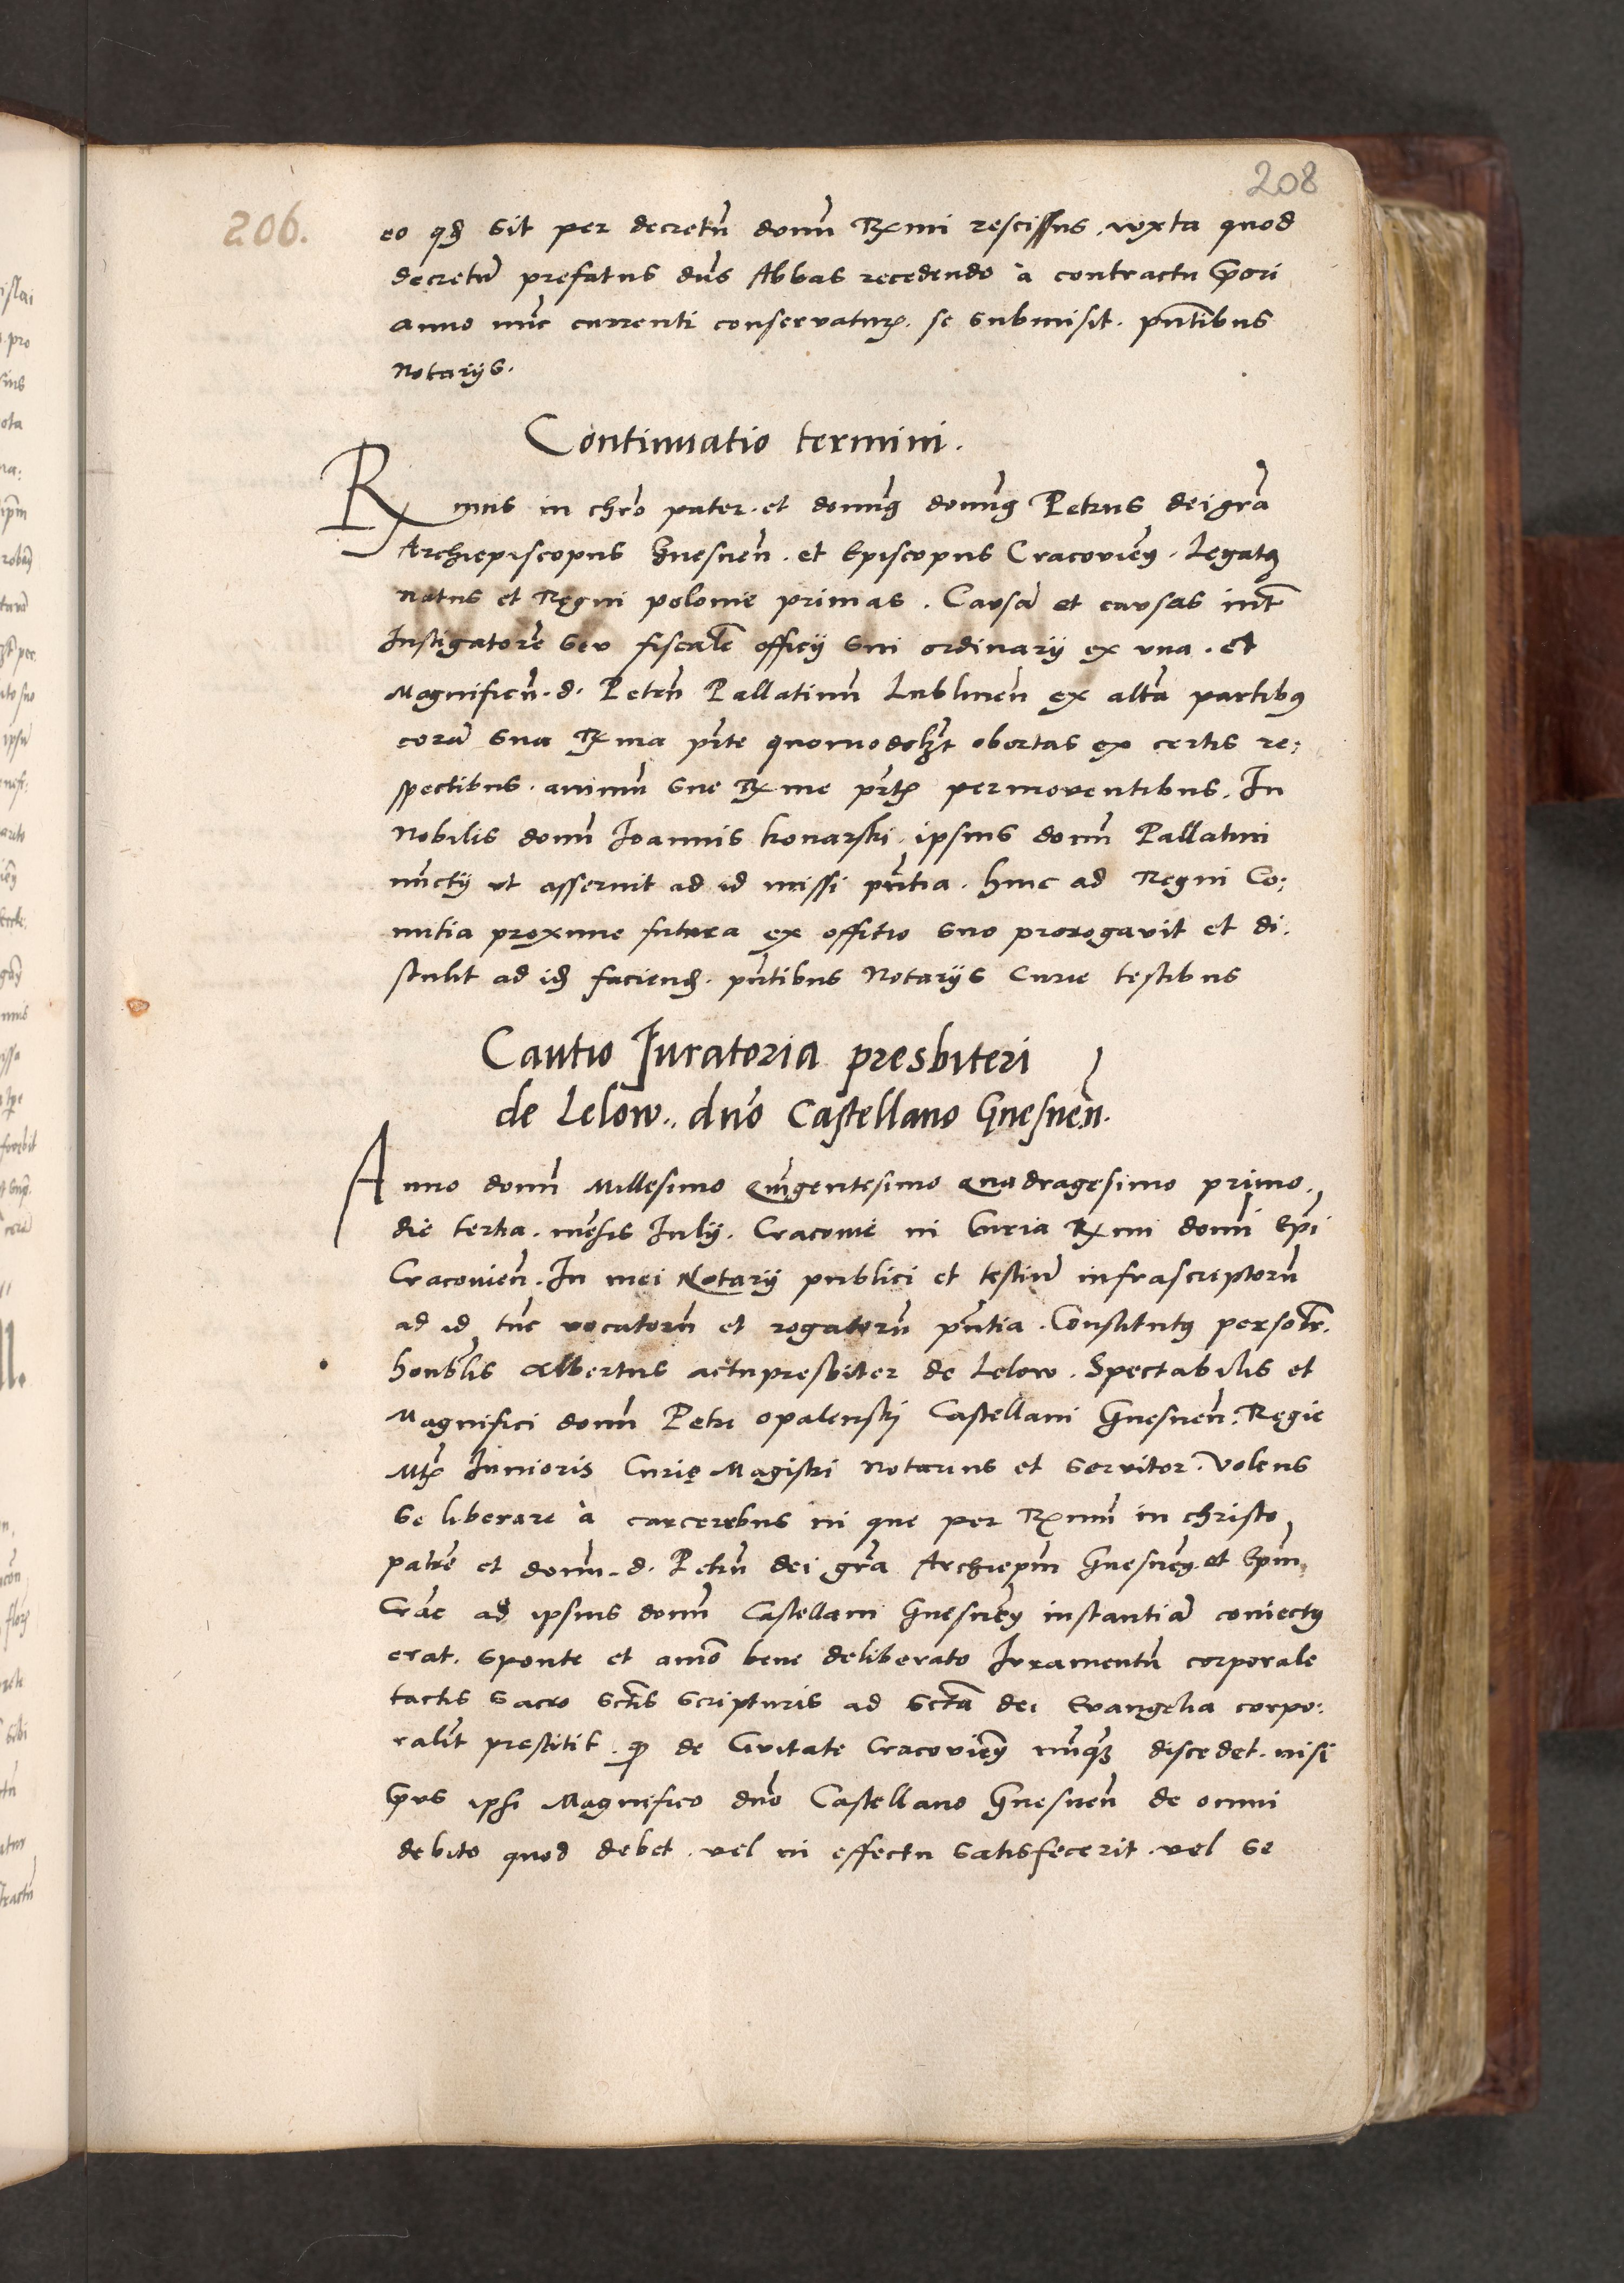 208
206.
eo qd sit per decretū domī Rxmi rescissus, iuxta quod
decretū prefatus dns Abbas recedendo à contractu priori
anno nuc currenti conservaturū. se submisit. pntibus
Notarijs.
Continuatio termini.
Rxmus in chro pater. et domng domng Petrus dei gra
Archiepiscopus Gnesnen. et Episcopus Cracovien. Legatq
natus et Regni polonie primas. Causā et causas int
Instigatorē seu fiscalē officij sui ordinarij ex una. et
Magnificū. d. Petrū Pallatinū Lublinen ex altā partibq
corā sua Rxma prte quomodolzt obortas ex certis re:
spectibus. animū sue Rxme prtis permoventibus. In
Nobilis domī Ioannis konarski. ipsius domī Pallatini
nuctij ut asseruit ad id missi pntia. hinc ad Regni Co:
mitia proxime futura ex offitio suo prorogavit et di:
stulit ad id faciend. pntibus Notarijs Curie testibus
Cautio Iuratoria presbiteri
de Lelow.. dno Castellano Gnesnen.
Anno domī Millesimo Quigentesimo Quadragesimo primo.
die tertia. mesis Iulij. Cracovie in Curia Rxmi domī Epi
Cracovien. In mei Notarij publici et testiū infrascriptorū
ad id tuc vocatorū et rogatorū pntia. Constitutq personlr.
honblis Albertus actupresbiter de Lelow. Spectabilis et
Magnifici domī Petri Opalenskj Castellani Gnesnen. Regie
Mtis Iunioris Curię Magistri Notarius et servitor. Volens
se liberare à carceribus in que per Rxmū in christo
patrē et domū. d. Petrū dei gra Archiepm Gnesneg. et Epm
Crac ad ipsius domī Castellani Gnesneg instantiā coniectq
erat. sponte et amo bene deliberato Iuramentū corporale
tactis sacro sctis scripturis ad scta dei Evangelia corpo:
ralit prestitit. qp de Civitate Cracovieg nuqz discedet. nisi
prius ipsi Magnifico dno Castellano Gnesnen de omni
debito quod debet. vel in effectu satisfecerit. vel se